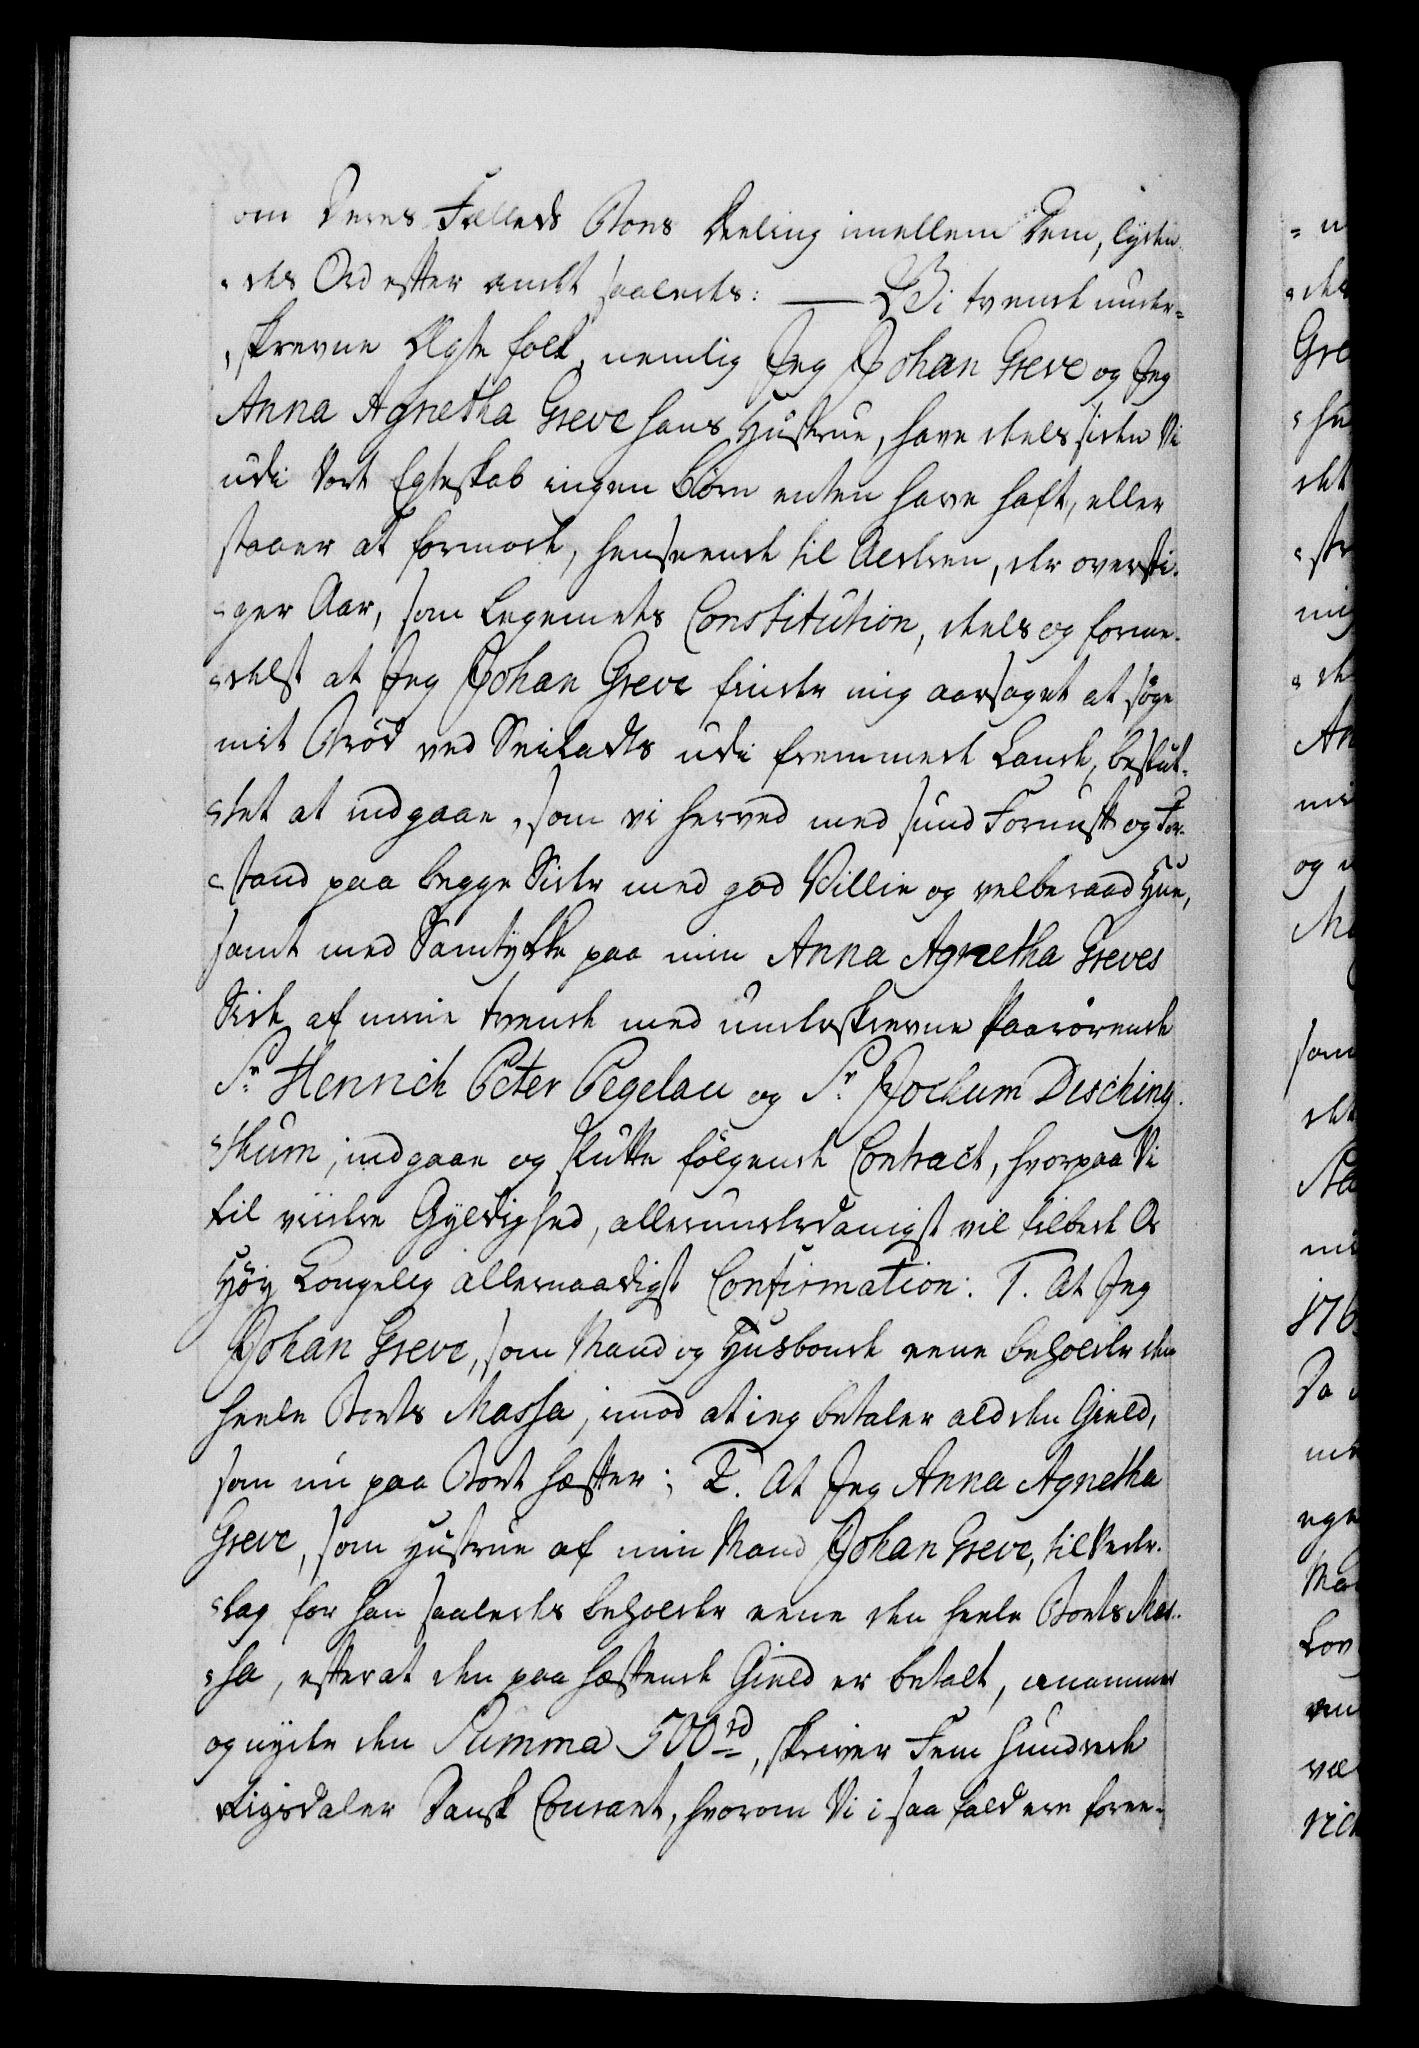 om Deres Fælleds Boes Deeling imellem Dem, lyden
des Ord efter andet saaledes: — Vi tvende under-
skrevne Ægte folk, nemlig Jeg Johan Greve og Jeg
Anna Agnetha Greve hans Hustrue, have deels siden Vi
udi vort Egteskab ingen Børn enten have haft, eller
staaer at formode, henseende til Alderen, der oversti-
ger Aar, som Legemets Constitution, deels og forme-
delst at Jeg Johan Greve finder mig aarsaget at søge
mit Brød ved Seilads udi fremmede Lande, beslut-
tet at indgaae, som vi herved med sund Fornuft og For-
stand paa begge Sider med god Villie og velberaad Hue,
samt med Samtykke paa min Anna Agnetha Greves
Side af mine tvende med underskrevne Paarørende
Sr. Henrich Peter Pegelau og Sr. Jochum Desching-
thum, indgaae og slutte følgende Contract, hvorpaa Vi
til viidre Gyldighed, allerunderdanigst vil tilbede Os
Høy Kongelig allernaadigst Confirmation: 1. At Jeg
Johan Greve, som Mand og Husbonde eene beholder den
heele Boets Massa, imod at jeg betaler ald den Gield,
som nu paa Boet hæfter; 2. At Jeg Anna Agnetha
Greve, som Hustrue af min Mand Johan Greve, til Veder-
lag for han saaledes beholder eene den heele Boets Mas-
sa, efterat den paa hæftende Gield er betalt, annammer
og nyder den Summa 500 rd, skriver Fem hundrede
Rigsdaler Dansk Courant, hvorom Vi i saa fald ere foree-